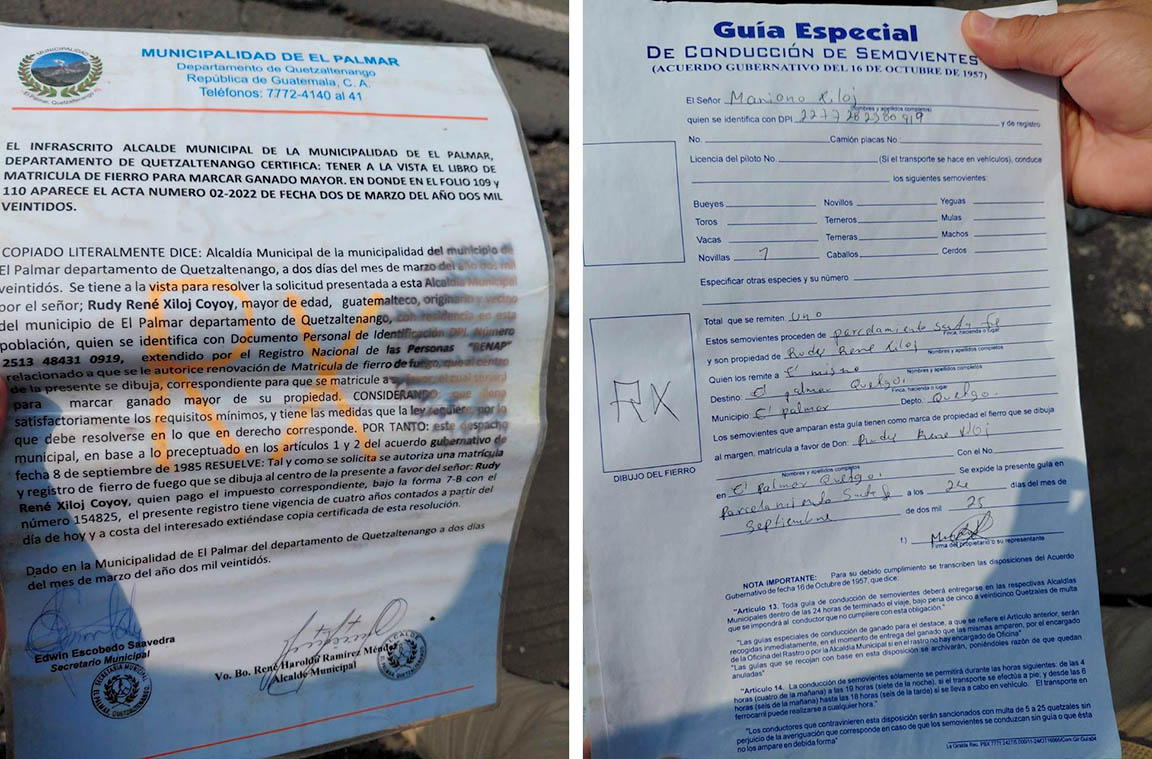 MUNICIPALIDAD DE EL PALMAR
Departamento de Quetzaltenango
República de Guatemala, C. A.
Teléfonos: 7772-4140 al 41
EL INFRASCRITO ALCALDE MUNICIPAL DE LA MUNICIPALIDAD DE EL PALMAR,
DEPARTAMENTO DE QUETZALTENANGO CERTIFICA: TENER A LA VISTA EL LIBRO DE
MATRICULA DE FIERRO PARA MARCAR GANADO MAYOR. EN DONDE EN EL FOLIO 109 y
110 APARECE EL ACTA NUMERO 02-2022 DE FECHA DOS DE MARZO DEL AÑO DOS MIL
VEINTIDOS.
COPIADO LITERALMENTE DICE: Alcaldía Municipal de la municipalidad del municipio de
El Palmar departamento de Quetzaltenango, a dos días del mes de marzo del año dos mil
veintidós. Se tiene a la vista para resolver la solicitud presentada a esta Alcaldía Municipal
por el señor; Rudy René Xiloj Coyoy, mayor de edad, guatemalteco, originario y vecino
del municipio de El Palmar departamento de Quetzaltenango, con residencia en esta
población, quien se identifica con Documento Personal de Identificación DPI. Número
2513 48431 0919, extendido por el Registro Nacional de las Personas "RENAP"
relacionado a que se le autorice renovación de Matricula de fierro de fuego, que al centro
de la presente se dibuja, correspondiente para que se matricule a favor, el cual servirá
para marcar ganado mayor de su propiedad. CONSIDERANDO: que llena
satisfactoriamente los requisitos mínimos, y tiene las medidas que la ley requiere, por lo
que debe resolverse en lo que en derecho corresponde. POR TANTO: este despacho
municipal, en base a lo preceptuado en los artículos 1 y 2 del acuerdo gubernativo de
fecha 8 de septiembre de 1985 RESUELVE: Tal y como se solicita se autoriza una matrícula
y registro de fierro de fuego que se dibuja al centro de la presente a favor del señor: Rudy
René Xiloj Coyoy, quien pago el impuesto correspondiente, bajo la forma 7-B con el
número 154825, el presente registro tiene vigencia de cuatro años contados a partir del
día de hoy y a costa del interesado extiéndase copia certificada de esta resolución.
RX
Dado en la Municipalidad de El Palmar del departamento de Quetzaltenango a dos días
del mes de marzo del año dos mil veintidós.
Edwin Escobedo Saavedra
Secretario Municipal
Vo. Bo. René Haroldo Ramírez Méndez
Alcalde Municipal
Guía Especial
DE CONDUCCIÓN DE SEMOVIENTES
(ACUERDO GUBERNATIVO DEL 16 DE OCTUBRE DE 1957)
El Señor Mariono Xiloj
(Nombres y apellidos completos)
quien se identifica con DPI 2277282580919 y de registro
No. Camión placas No
Licencia del piloto No. (Si el transporte se hace en vehículos), conduce
los siguientes semovientes:
Bueyes Novillos Yeguas
Toros Terneros Mulas
Vacas Terneras Machos
Novillas 1 Caballos Cerdos
Especificar otras especies y su número
Total que se remiten uno
Estos semovientes proceden de parcelamiento Santa fe
Finca, hacienda o lugar
y son propiedad de Rudy René Xiloj
Nombres y apellidos completos
Quien los remite a El mismo
Nombres y apellidos completos
Destino: El palmar Quetgo.
Finca, hacienda o lugar
Municipio El palmar Depto. Quetgo.
Los semovientes que amparan esta guía tienen como marca de propiedad el fierro que se dibuja
al margen, matricula a favor de Don: Rudy Rene Xiloj
Con el No.
Nombres y apellidos completos
en El Palmar Quetgo. Se expide la presente guía en
Parcelamiento Santa fe a los 24 días del mes de
Septiembre de dos mil 25
f.)
Firma del propietario o su representante
RX
DIBUJO DEL FIERRO
NOTA IMPORTANTE: Para su debido cumplimiento se transcriben las disposiciones del Acuerdo
Gubernativo de fecha 16 de Octubre de 1957, que dice:
"Artículo 13. Toda guía de conducción de semovientes deberá entregarse en las respectivas Alcaldías
Municipales dentro de las 24 horas de terminado el viaje, bajo pena de cinco a veinticinco Quetzales de multa
que se impondrá al conductor que no cumpliere con esta obligación."
"Las guías especiales de conducción de ganado para el destace, a que se refiere el Artículo anterior, serán
recogidas inmediatamente, en el momento de entrega del ganado que las mismas amparen, por el encargado
de la Oficina del Rastro o por la Alcaldía Municipal si en el rastro no hay encargado de Oficina"
"Las guías que se recojan con base en esta disposición se archivarán, poniéndoles razón de que quedan
anuladas"
"Artículo 14. La conducción de semovientes sólamente se permitirá durante las horas siguientes: de las 4
horas (cuatro de la mañana) a las 19 horas (siete de la noche), si el transporte se efectúa a pie; y desde las 6
horas (seis de la mañana) hasta las 18 horas (seis de la tarde) si se lleva a cabo en vehículo. El transporte en
ferrocarril puede realizarse a cualquier hora."
"Los conductores que contravinieren esta disposición serán sancionados con multa de 5 a 25 quetzales sin
perjuicio de la averiguación que corresponde en caso de que los semovientes se conduzcan sin guía o que ésta
no los ampare en debida forma"